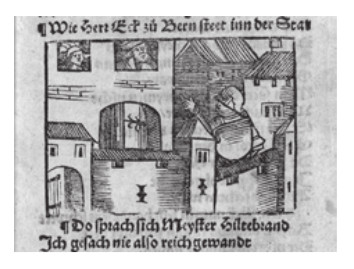 ¶ Wie Herr Eck zů Bern steet inn der Stat
¶ Do sprach sich Meyster Hiltebrand
Jch gesach nie also reich gewandt